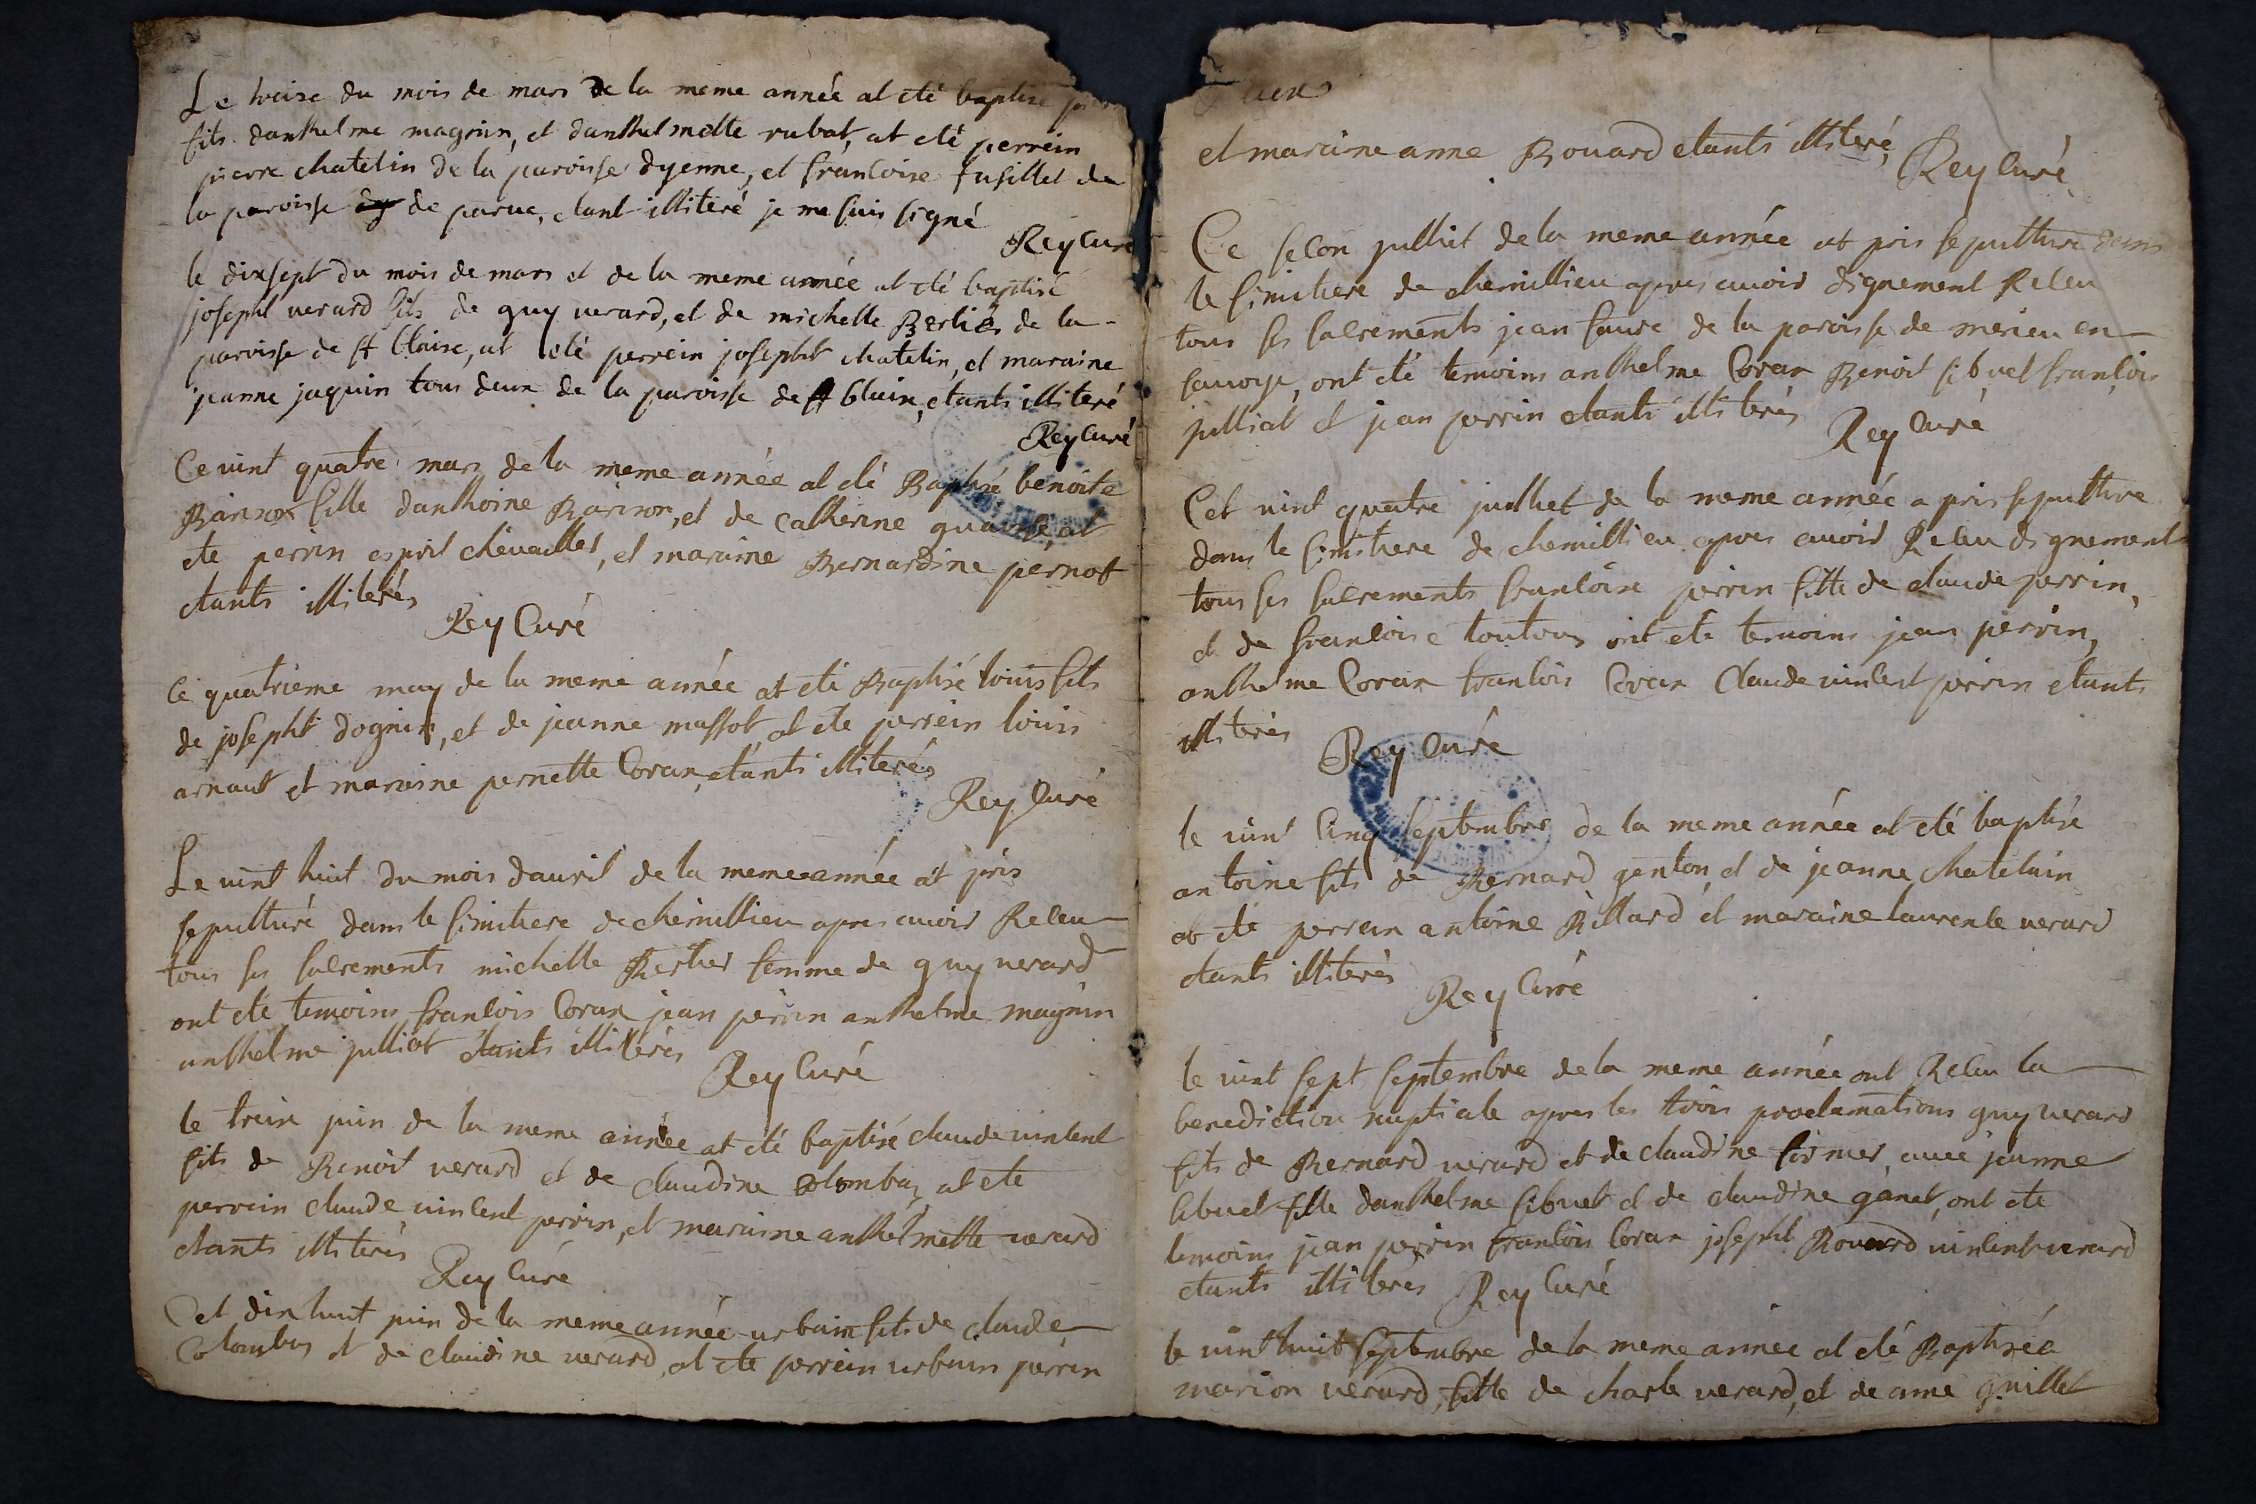 Le treise du mois de mars de la meme année at eté baptise
fils danthelme magnin, et danthelmette rubat, at eté perrein
pierre chatelin de la paroisse dyenne, et francoise fusillet de
la paroisse de parue, etant illiteré je me suis signé
Rey Curé
le dixsept du mois de mars et de la meme année at eté baptisé
josepht verard fils de guy verard, et de michelle Berlier de la
paroisse de st blaise, at eté perrein josepht chatelin, et maraine
jeanne jaquin tous deux de la paroisse de st blaise, etants illiteré
Rey Curé
Ce vint quatre mars de la meme année at eté Baptisé benoite
Barison fille danthoine Barison, et de catherine at
ete perrin esprit chevaillet, et maraine Bernardine pernot
etants illiterés
Rey Curé
Ce quatrieme may de la meme année at eté Baptisé louis fils
de josepht dognin, et de jeanne massot at ete perrein louis
arnaut et maraine pernette Corax, etants illiterés
Rey Curé
Le vint huit du mois dauril de la meme année at pris
sepulturé dans le simitiere de chemillieu apres avoir Releu
tous ses sacrements michelle Berlier femme de guy verard
ont ete temoins francois Corax jean perrin anthelme magnin
anthelme julliot étants illiterés
Rey Curé
le treise juin de la meme année at eté baptisé claude vincent
fils de Benoit verard et de claudine Colombaz at ete
perrein claude vincent perrin, et maraine anthelmette verard
etants illiterés
Rey Curé
Cet dix huit juin de la meme année urbain fils de claude
Colombas et de claudine verard, at ete perrein urbain perrin
et maraine anne Bouard etants illiteré
Rey Curé
Ce secon julliet de la meme année at pris sepulture dans
le simitiere de chemillieu apres avoir dignement Releu
tous ses sacrements jean faure de la paroisse de merieu en
savoye, ont eté temoins anthelme Corax Benoit sibuet françois
julliat et jean perrin etants illiterés
Rey Curé
Cet vint quatre julliet de la meme année a pris sepulture
dans le simitiere de chemillieu apres avoir Releu dignement
tous ses sacrements francoise perrin fille de claude perrin,
et de francoise toutoux ont ete temoins jean perrin,
anthelme Corax francois Corax Claude vincent perrin etants
illiterés
Rey Curé
le vint cinq septembre de la meme année at eté baptisé
antoine fils de Bernard genton, et de jeanne chatelain
at eté perrein antoine Billard et maraine laurente verard
etants illiterés
Rey Curé
le vint sept septembre de la meme année ont Releu la
benediction nuptiale apres les trois proclamations guy verard
fils de Bernard verard et de claudine avec jeanne
sibuet fille danthelme sibuet et de claudine ganet, ont ete
temoins jean perrin francois Corax josepht Bouard vincent verard
etants illiterés
Rey Curé
le vint huit septembre de la meme année at eté Baptisée
marion verard, fille de charle verard, et de anne guillet